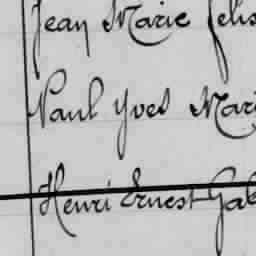 Jean Marie Félix
Paul Yves Mari
Henri Ernest Gab